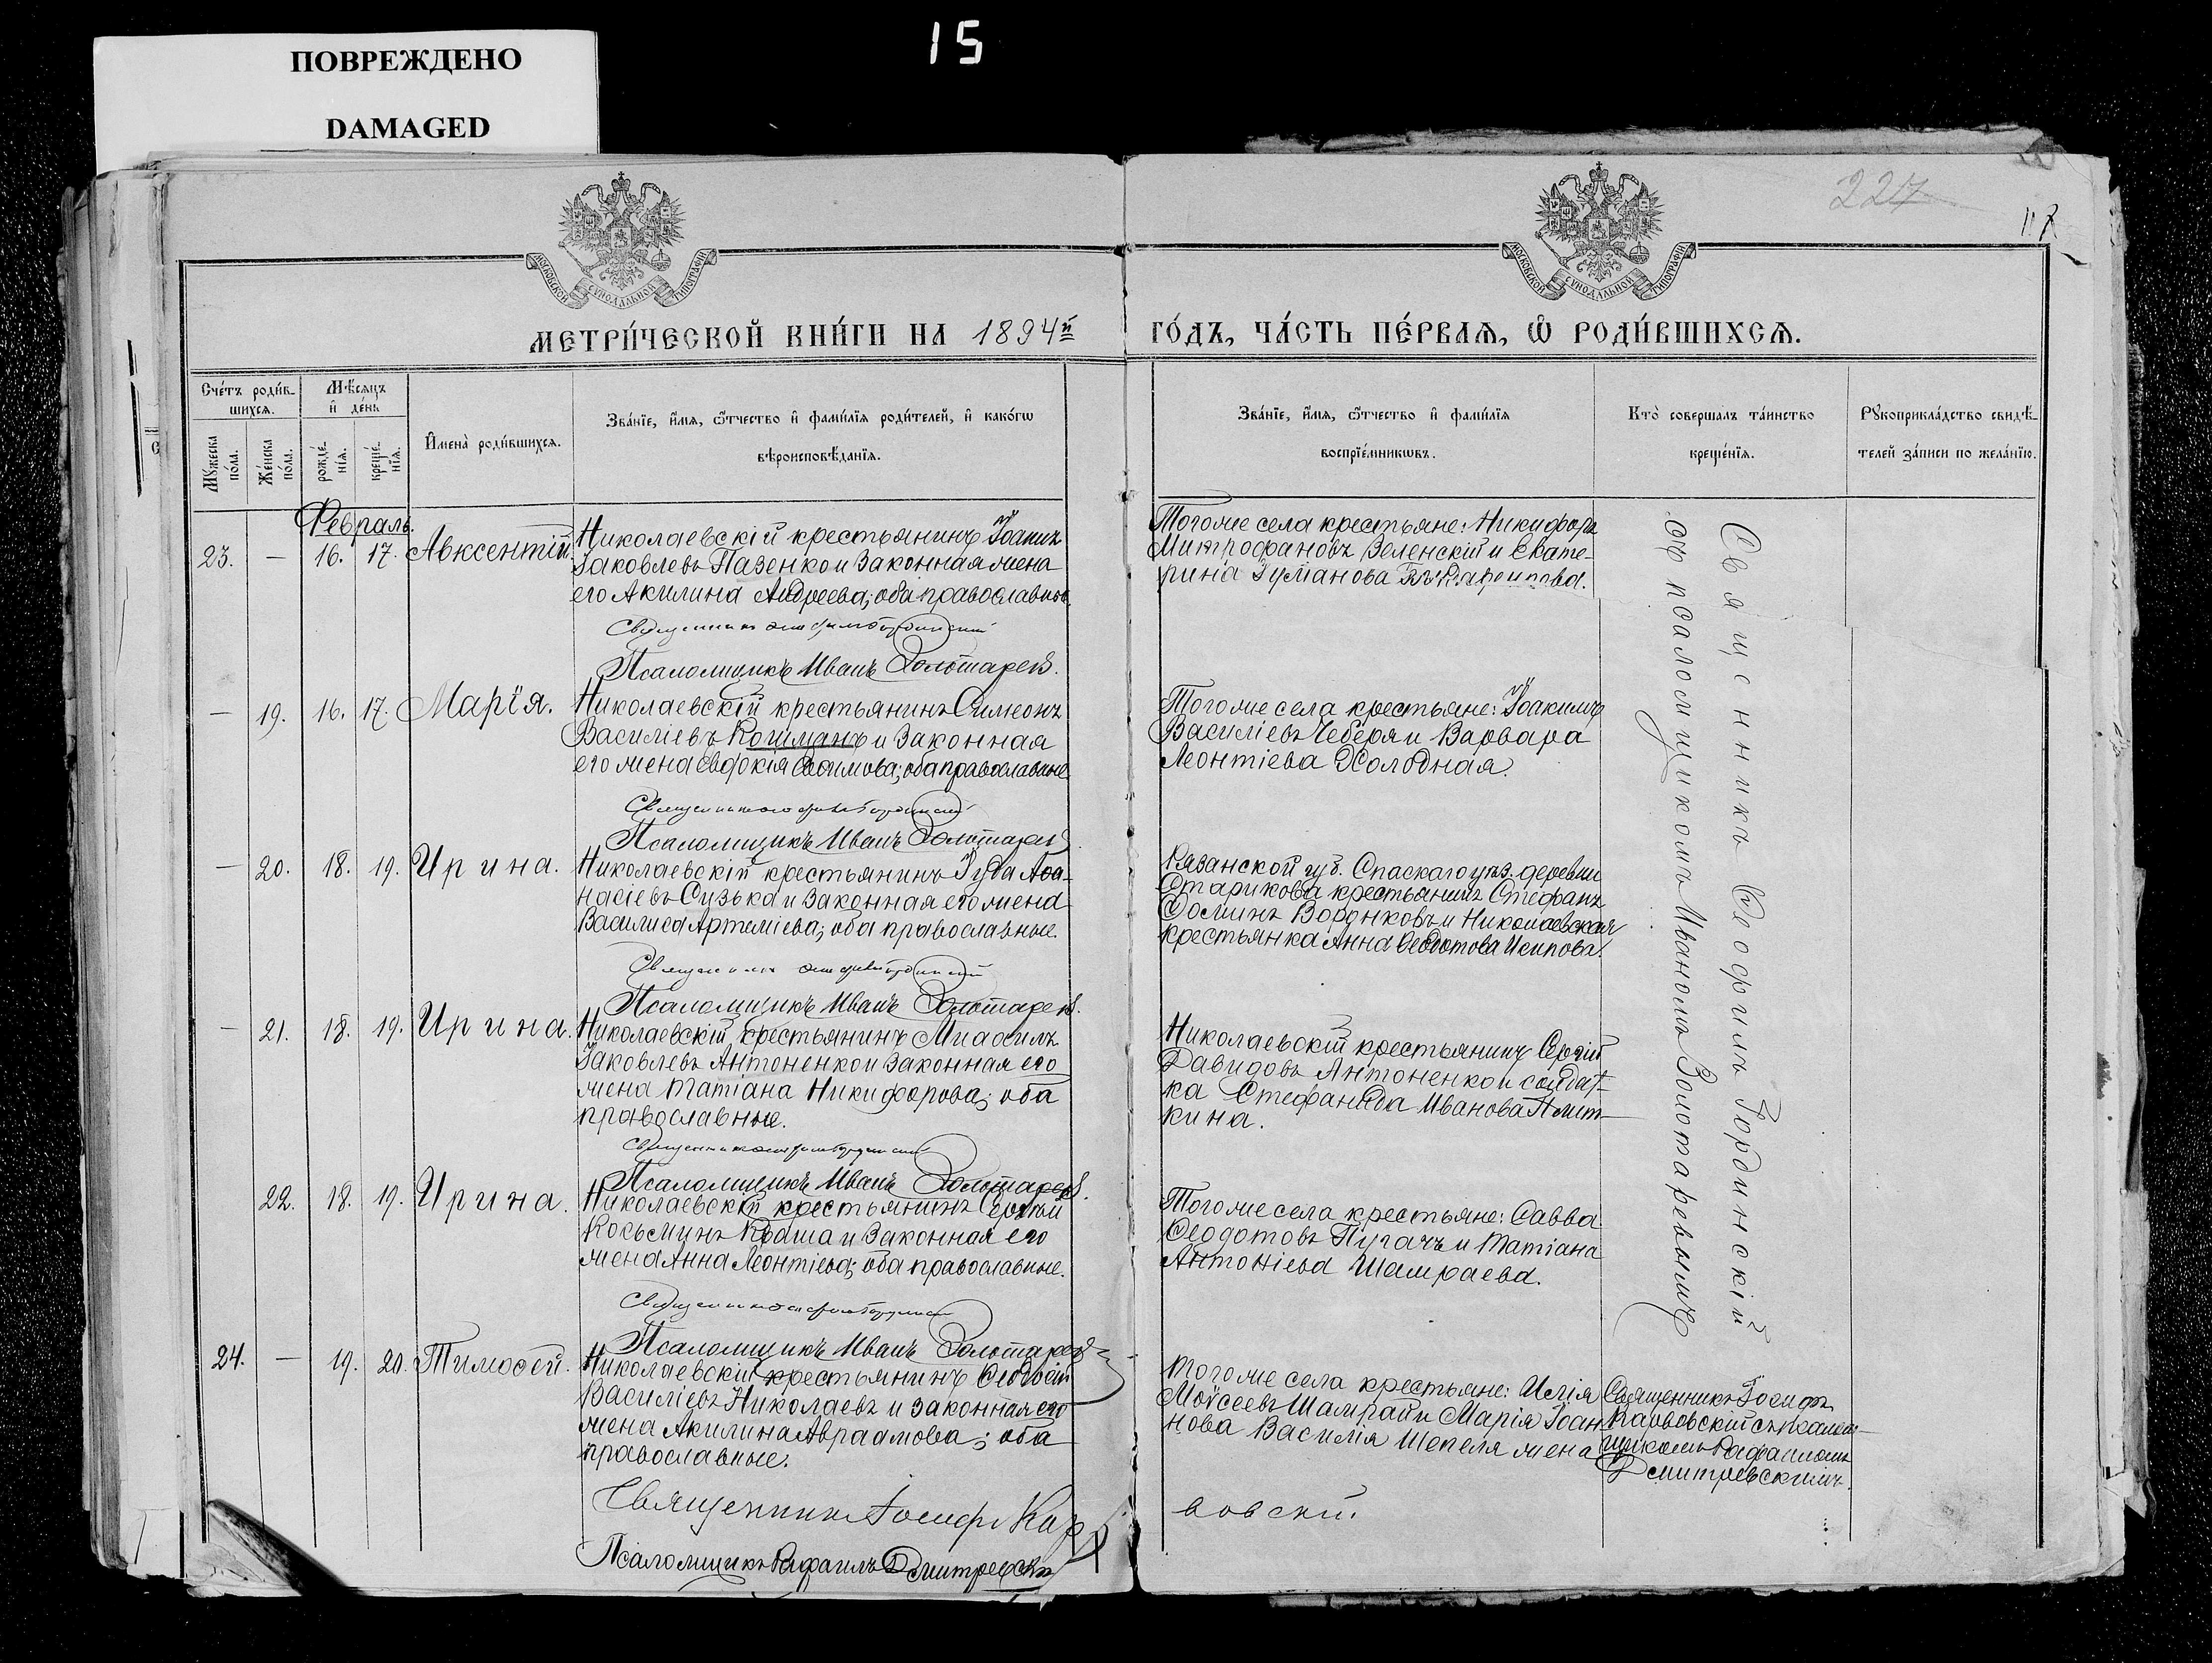 ПОВРЕЖДЕНО
DAMAGED
15
227
МОСКОВСКОЙ СѴНОДАЛЬНОЙ ТИПОГРАФІИ
МОСКОВСКОЙ СѴНОДАЛЬНОЙ ТИПОГРАФІИ
МЕТРИ́ЧЕСКОЙ КНИ́ГИ НА 1894й ГО́ДЪ, ЧА́СТЬ ПЕ́РВАѦ, Ѡ҆ РОДИ́ВШИХСѦ.
Сче́тъ роди́в-
шихсѧ.
Мꙋжеска по́ла.
Же́нска по́ла.
Мѣ́сяцъ
и҆ день
рожде́-
нїѧ.
креще́-
нїѧ.
И҆мена̀ роди́вшихсѧ.
Зва́нїе, и҆́мѧ, ѻ҆́тчество и҆ фами́лїѧ роди́телей, и҆ како́гѡ
вѣроисповѣ́данїѧ.
Зва́нїе, и҆́мѧ, ѻ҆́тчество и҆ фами́лїѧ
воспрїе́мникѡвъ.
Кто̀ соверша́лъ та́инство
креще́нїѧ.
Рꙋкоприкла́дство свидѣ́-
телей за́писи по жела́нїю.
Февраль.
23. — 16. 17. Авксентій.
Николаевскій крестьянинъ Іоаннъ
Іаковлевъ Пазенко и законная жена
его Акилина Андреева; оба православные.
Псаломщикъ Иванъ Золотаревъ.
Тогоже села крестьяне: Никифоръ
Митрофановъ Зеленскій и Екате-
рина
Священникъ Ѳеофилъ Гординскій
съ псаломщикомъ Иваномъ Золотаревымъ
— 19. 16. 17. Марія.
Николаевскій крестьянинъ Симеонъ
Василіевъ Кошманъ и законная
его жена Евдокія Ефимова; оба православные
Псаломщикъ Иванъ Золотаревъ
Тогоже села крестьяне: Іоакимъ
Василіевъ Чеберя и Варвара
Леонтіева Холодная.
— 20. 18. 19. Ирина.
Николаевскій крестьянинъ Іуда Аѳа-
насіевъ Сузька и законная его жена
Василиса Артеміева; оба православные.
Псаломщикъ Иванъ Золотаревъ.
Рязанской губ. Спаскаго уѣз. деревни
Старикова крестьянинъ Стефанъ
Ѳоминъ и Николаевская
крестьянка Анна Ѳеодотова
— 21. 18. 19. Ирина.
Николаевскій крестьянинъ Михаилъ
Іаковлевъ Антоненко и законная его
жена Татіана Никифорова; оба
православные.
Псаломщикъ Иванъ Золотаревъ.
Николаевскій крестьянинъ Сергій
Давидовъ Антоненко и солдат-
ка Стефанида Иванова
кина.
22. 18. 19. Ирина.
Николаевскій крестьянинъ Сергій
Косьминъ Кваша и законная его
жена Анна Леонтіева; оба православные.
Псаломщикъ Иванъ Золотаревъ
Тогоже села крестьяне: Савва
Ѳеодотовъ Пугачъ и Татіана
Антоніева Шамраева.
24. — 19. 20. Тимоѳей.
Николаевскій крестьянинъ
Василіевъ Николаевъ и законная его
жена Акилина Авраамова; оба
православные.
Тогоже села крестьяне: Илія
Моѵсеевъ Шамрай и Марія Іоан-
нова Василія Шепеля жена
Священникъ Іосифъ
Карвовскій съ псалом-
щикомъ Рафаиломъ
Дмитревскимъ.
Священникъ Іосифъ Кар
вовскій.
Псаломщикъ Рафаилъ Дмитревскій